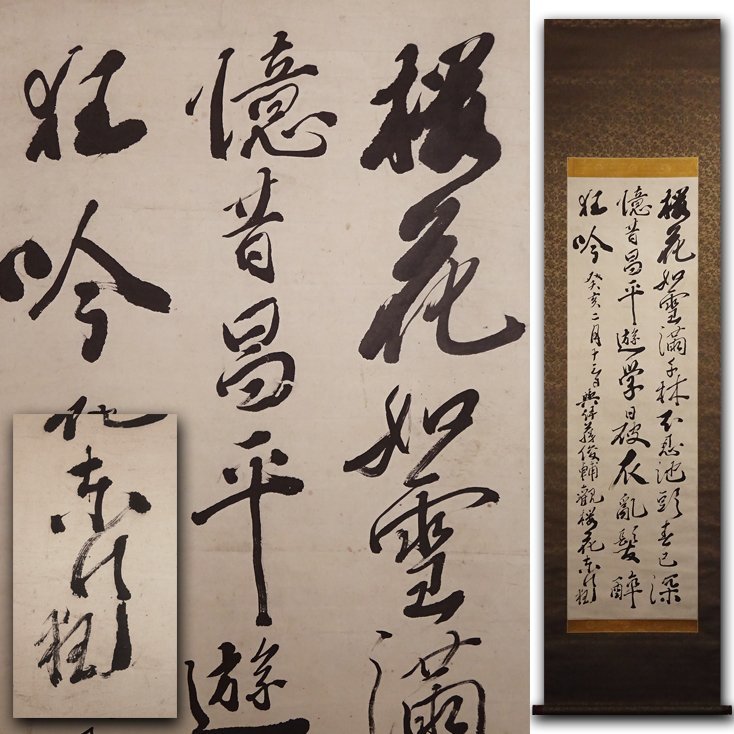 櫻花如雪滿
憶昔昌平遊
狂吟
花東行狂
櫻花如雪滿千林不忍池頭春已深
憶昔昌平遊學日破衣亂髮醉
狂吟 癸亥二月十三日與伊藤俊輔觀櫻花東行狂